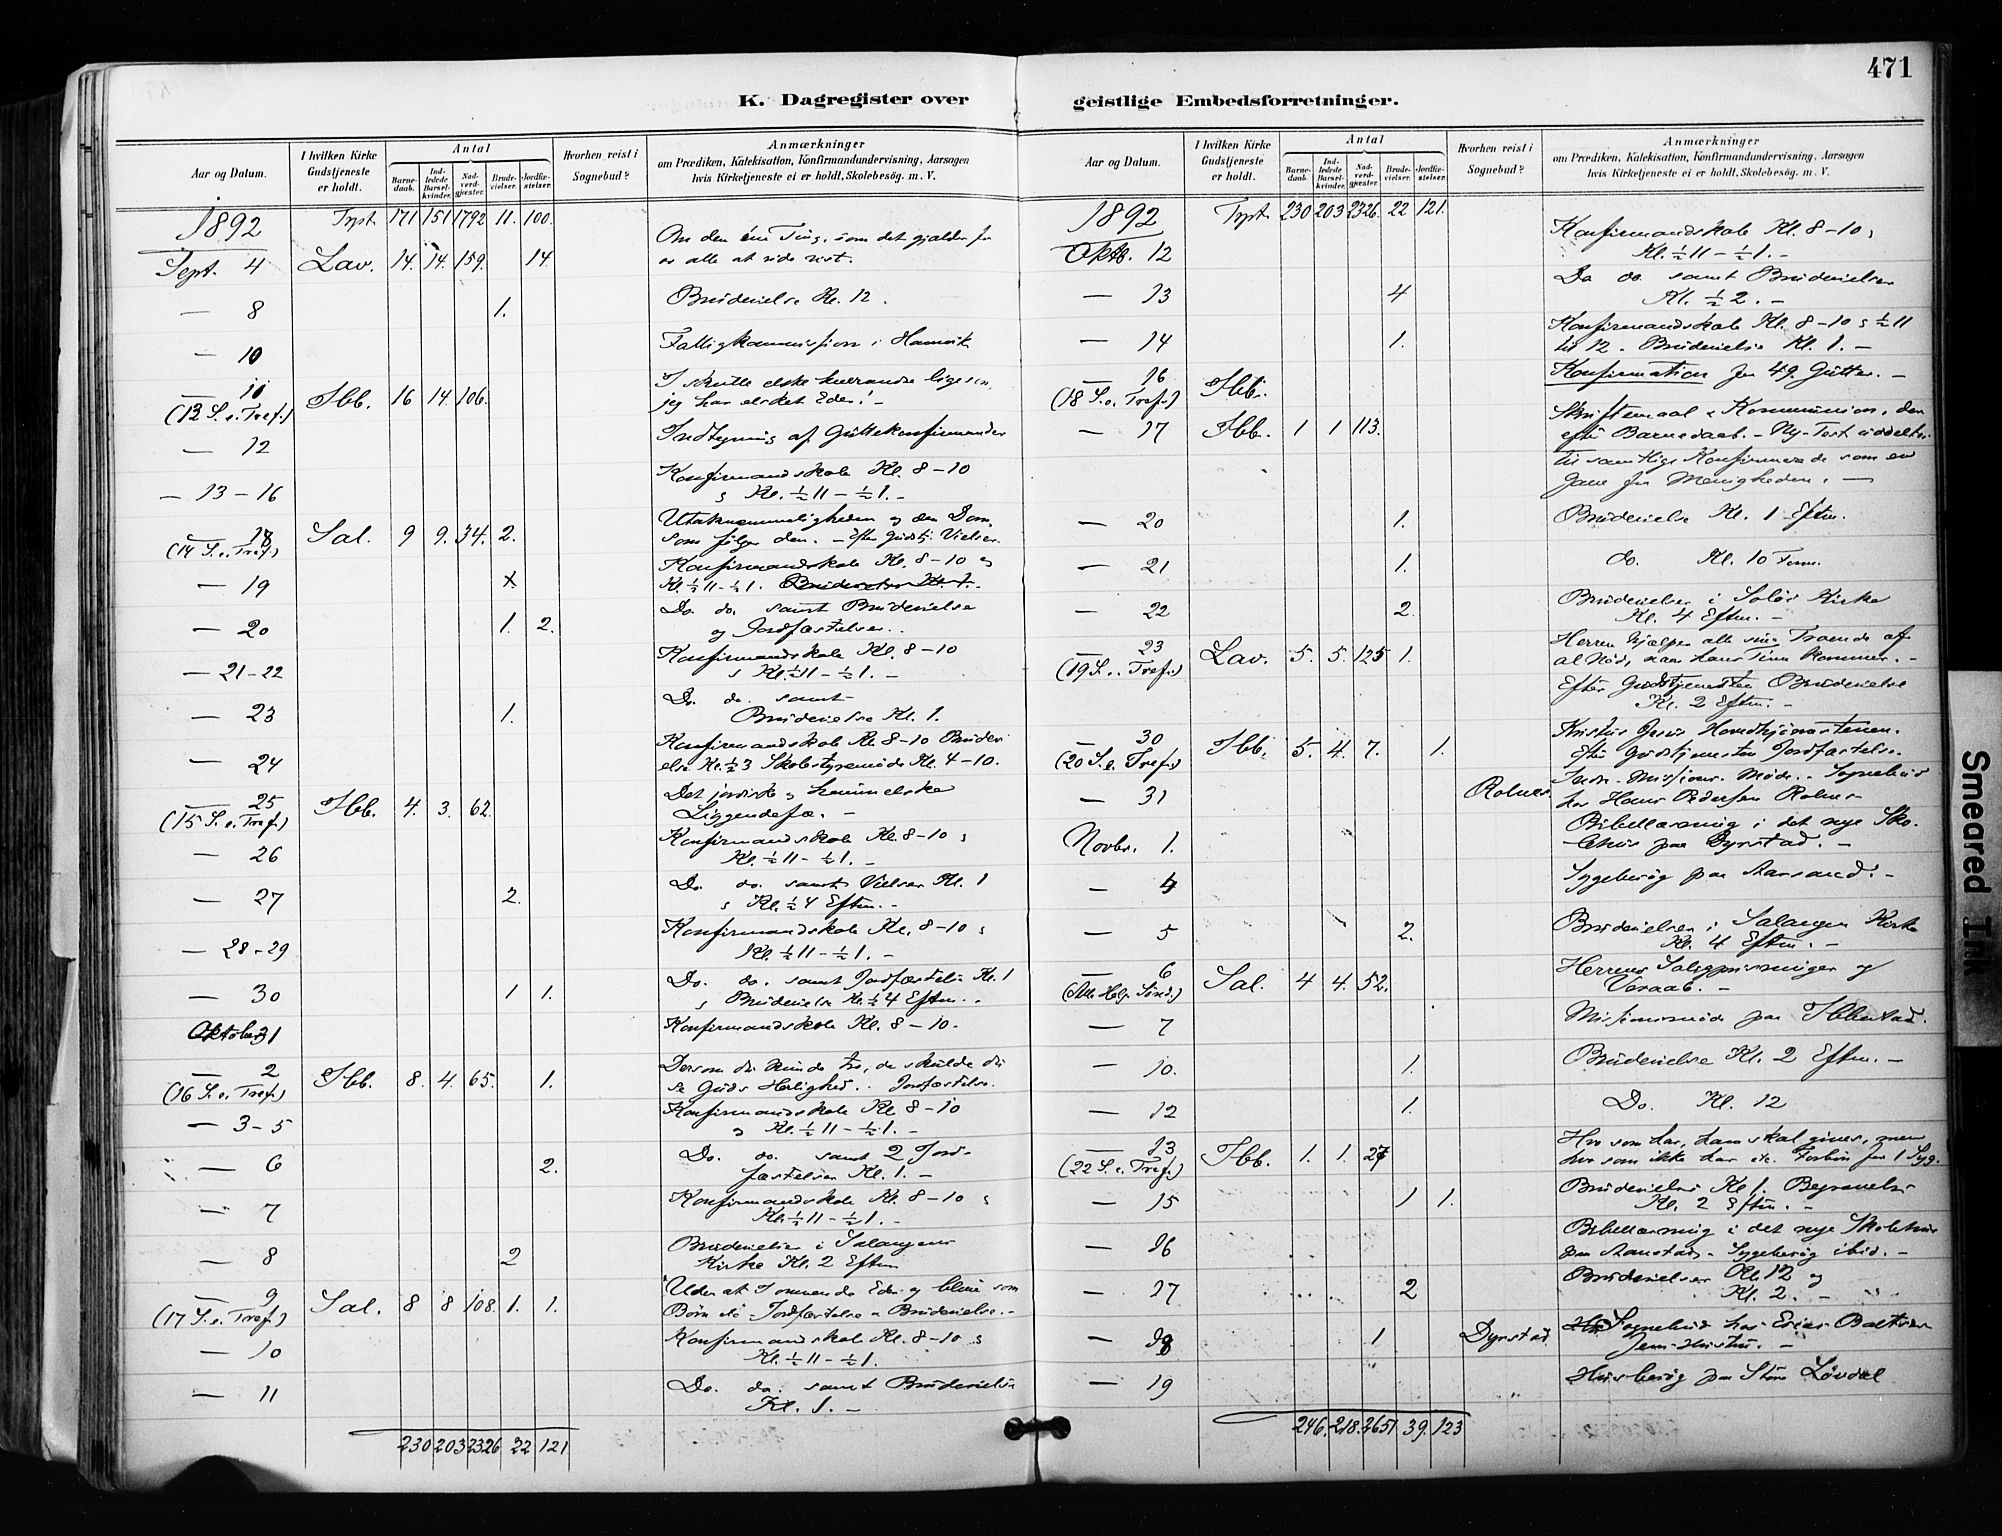 471
K. Dagregister over
Aar og Datum.
I hvilken Kirke Gudstjeneste er holdt.
Antal
Barne-daab.
Ind-ledede Barsel-kvinder.
Nad-verd-gjester.
Brude-vielser.
Jordfæ-stelser.
Hvorhen reist i Sognebud?
Anmærkninger
om Prædiken, Katekisation, Konfirmandundervisning, Aarsagen
hvis Kirketjeneste ei er holdt, Skolebesøg. m. V.
1892 Trpt. 171 151 1792 11. 100.
Om den ene Ting, som det gjælder for
os alle at vide vist.
Sept. 4 Lav. 14. 14. 159. 14.
— 8 1. Brudevielse Kl. 12.
— 10 Fattigkommission i Hamvik
— 11 Ibb. 16 14. 106. I skulle elske hverandre ligesom
(13 S. e. Tref.) jeg har elsket Eder! –
— 12 Indtegning af Guttekonfirmander
— 13 – 16 Konfirmandskole Kl. 8 – 10
& Kl. ½ 11 – ½ 1. –
— 18 Sal. 9 9. 34. 2. Utaknemmeligheden og den Dom,
(14 S. e. Tref.) som følger den. – Efter Gudstj. Vielser.
— 19 x Konfirmandskole Kl. 8 – 10 &
Kl. ½ 11 – ½ 1.
— 20 1. 2. Do. do. samt Brudevielse
og Jordfæstelser.
— 21 – 22 Konfirmandskole Kl. 8 – 10
& Kl. ½ 11 – ½ 1. –
— 23 1. Do. do. samt
Brudevielse Kl. 1.
— 24 Konfirmandskole Kl. 8 – 10 Brudevi
else Kl. ½ 3 Skolestyremøde Kl. 4 – 10.
— 25 Ibb. 4. 3. 62. Det jordiske & himmelske
(15 S. e. Tref.) Liggendefæ. –
— 26 Konfirmandskole Kl. 8 – 10 &
Kl. ½ 11 – ½ 1. –
— 27 2. Do. do. samt Vielser Kl. 1
& Kl. ½ 4 Eftm. –
— 28 – 29 Konfirmandskole Kl. 8 – 10 &
Kl. ½ 11 – ½ 1. –
— 30 1 1. Do. do. samt Jordfæstelse Kl. 1
& Brudevielse Kl. ½ 4 Eftm.
Oktober 1 Konfirmandskole Kl. 8 – 10.
— 2 Ibb. 8. 4. 65. 1. Dersom du kunde tro, da skulde du
(16 S. e. Tref.) se Guds Herlighed. Jordfæstelse.
— 3 – 5 Konfirmandskole Kl. 8 – 10
& Kl. ½ 11 – ½ 1. –
— 6 2. Do. do. samt 2 Jord-
fæstelser Kl. 1. –
— 7 Konfirmandskole Kl. 8 – 10 &
Kl. ½ 11 – ½ 1. –
— 8 2 Brudevielser i Salangens
Kirke Kl. 2 Eftm
— 9 Sal. 8 8 108. 1. 1. Uden at I omvende Eder og blive som
(17 S. e. Tref.) Børn etc – Jordfæstelse & Brudevielse. –
— 10 Konfirmandskole Kl. 8 – 10 &
Kl. ½ 11 – ½ 1.
— 11 Do. do. samt Brudevielse
Kl. 1. –
230 203 2326 22 121
geistlige Embedsforretninger.
Aar og Datum.
I hvilken Kirke Gudstjeneste er holdt.
Antal
Barne-daab.
Ind-ledede Barsel-kvinder.
Nad-verd-gjester.
Brude-vielser.
Jordfæ-stelser.
Hvorhen reist i Sognebud?
Anmærkninger
om Prædiken, Katekisation, Konfirmandundervisning, Aarsagen
hvis Kirketjeneste ei er holdt, Skolebesøg. m. V.
1892 Trpt. 230 203 2326. 22 121.
Oktb. 12 Konfirmandskole Kl. 8 – 10 &
Kl. ½ 11 – ½ 1. –
— 13 4 Do do. samt Brudevielser
Kl. ½ 2. –
— 14 1. Konfirmandskole Kl. 8 – 10 & ½ 11
til 12 – Brudevielse Kl. 1. –
— 16 Ibb. Konfirmation for 49 Gutter. –
(18 S. e. Tref.)
— 17 Ibb. 1 1 113. Skriftemaal & Kommunion, der
efter Barnedaab. – Ny-Test. uddeltes
til samtlige Konfirmerede som en
Gave fra Menigheden. —
— 20 1. Brudevielse Kl. 1 Eftm.
— 21 1. do. Kl. 10 Form.
— 22 2. Brudevielser i Kirke
Kl. 4 Eftm. –
— 23 Lav. 5. 5. 125 1. Herren hjælper alle sine Troende af
(19 S. e. Tref.) al Nød, naar hans Time kommer. –
Efter Gudstjenesten Brudevielse
Kl. 2 Eftm. –
— 30 Ibb. 5. 4. 7. 1. Kristus Jesus Hovedhjørnestenen.
(20 S. e. Tref.) Efter Gudstjenesten Jordfæstelse.
— 31 Rolnes. Indre-Missions-Møde. – Sognebud
hos Hans Pedersen Rolnes
Novbr. 1. Bibellæsning i det nye Sko-
lehus paa Dyrstad. –
— 4 Sygebesøg paa Aarsand. –
— 5 2. Brudevielser i Salangen Kirke
Kl. 4 Eftm. –
— 6 Sal. 4 4. 52. Herrens Saligprisninger og
(Alle Helg. Sønd.) Veraab. –
— 7 Missionsmøde paa Ibbestad.
— 10. 1. Brudevielse Kl. 2 Eftm. –
— 12 1. Do. Kl. 12
— 13 Ibb. 1. 1. 27 Hvo som har, ham skal gives, men
(22 S. e. Tref.) hvo som ikke har etc. Forbøn for 1 Syg.
— 15 1 1. Brudevielse Kl. 1. Begravelse
Kl. 2 Eftm. –
— 16 Bibellæsning i det nye Skolehus
paa Aanstad. – Sygebesøg ibid. –
— 17 2 Brudevielser Kl. 12 og
Kl. 2. –
— 18 1 Dyrstad. Sognebud hos
— 19 Husbesøg paa Løvdal
246. 218. 2651 39. 123
Smeared Ink